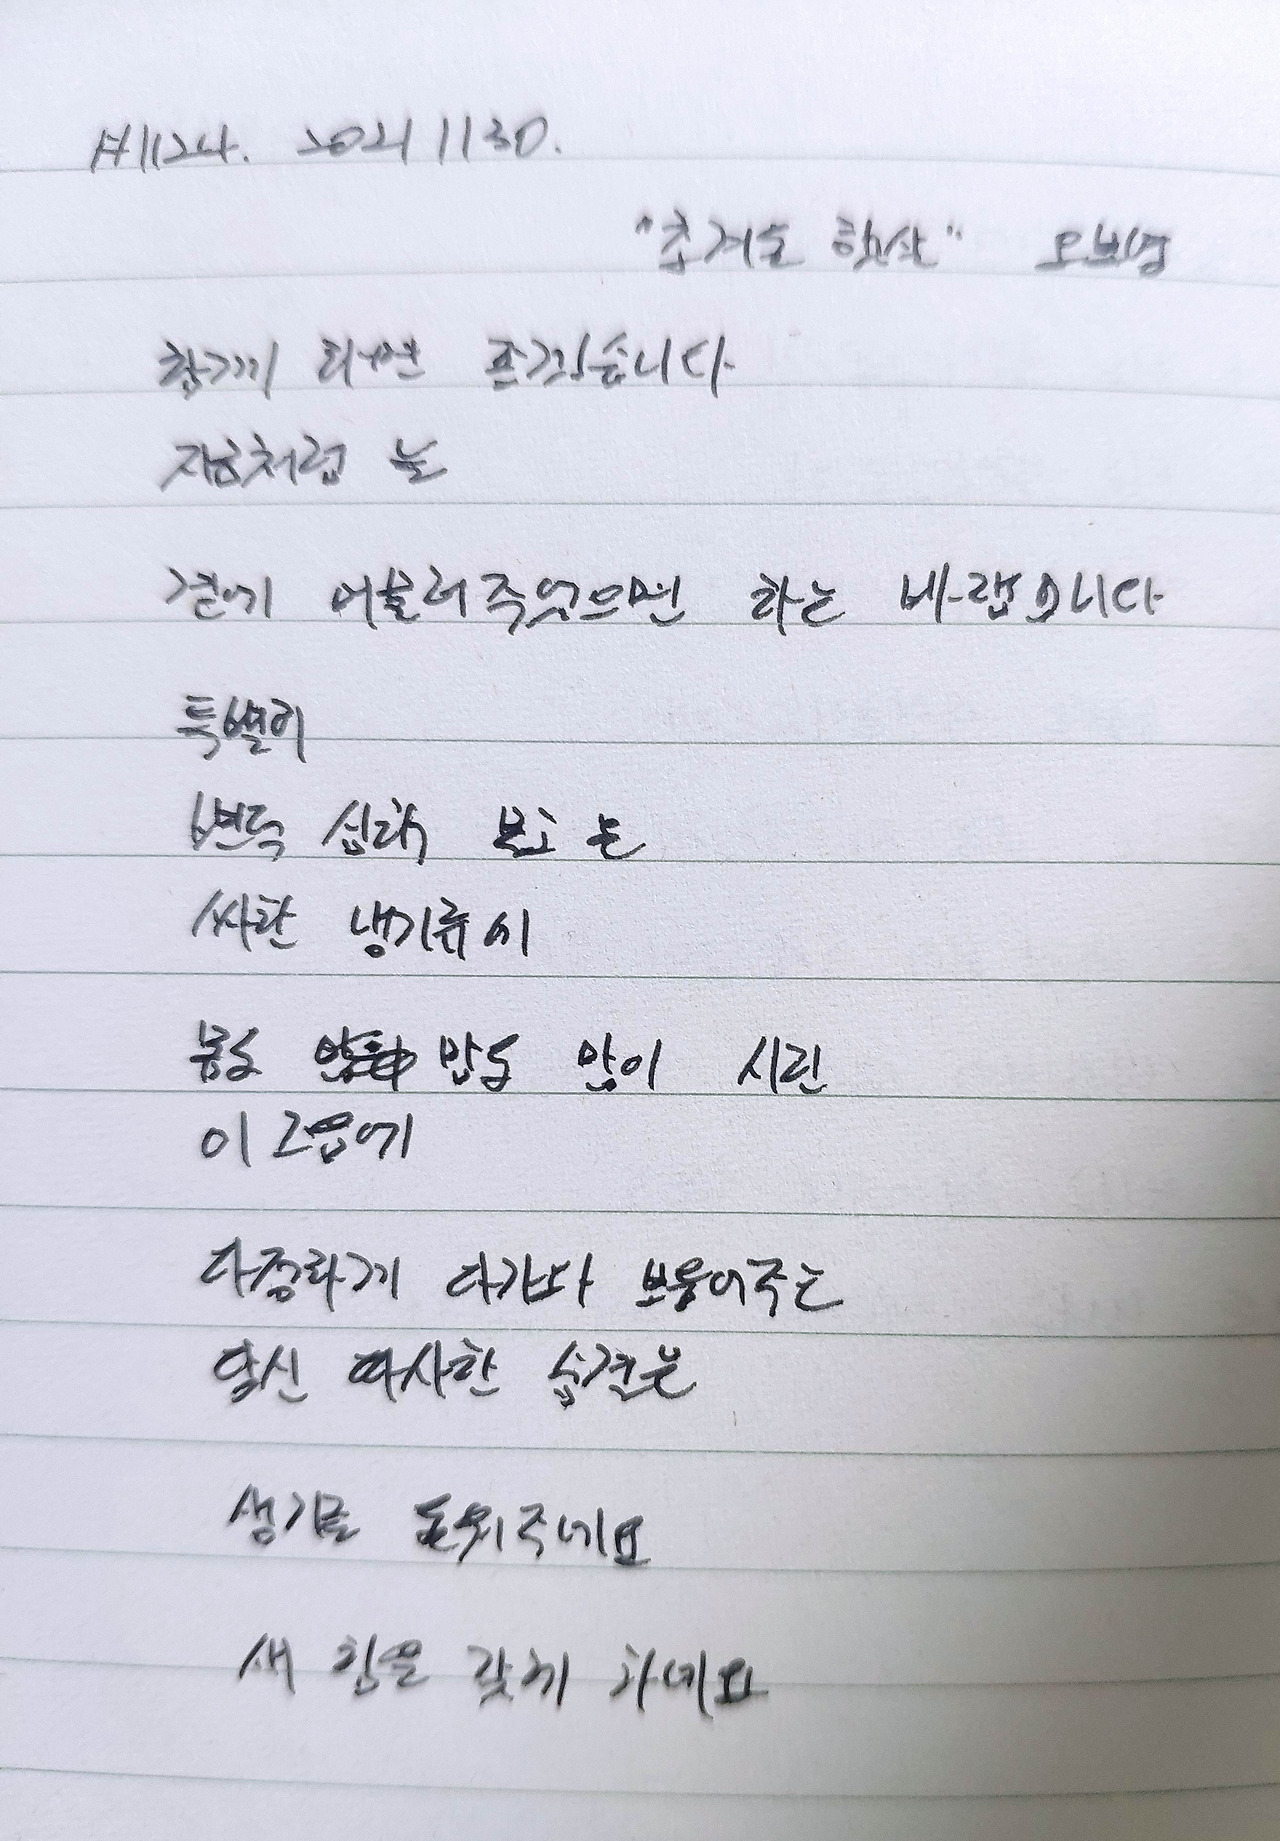 #1124. 2021 11 30.
"초겨울 햇살" 오보영
함께 하면 좋겠습니다
지금처럼 늘
곁에 머물러주었으면 하는 바램입니다
특별히
변득 심해 보이는
싸한 냉기류에
몸도 맘도 많이 시린
이 그럼에
다정하게 다가와 보듬어주는
당신 따사한 숨결은
생기를 돋워주네요
새 힘을 갖게 하네요